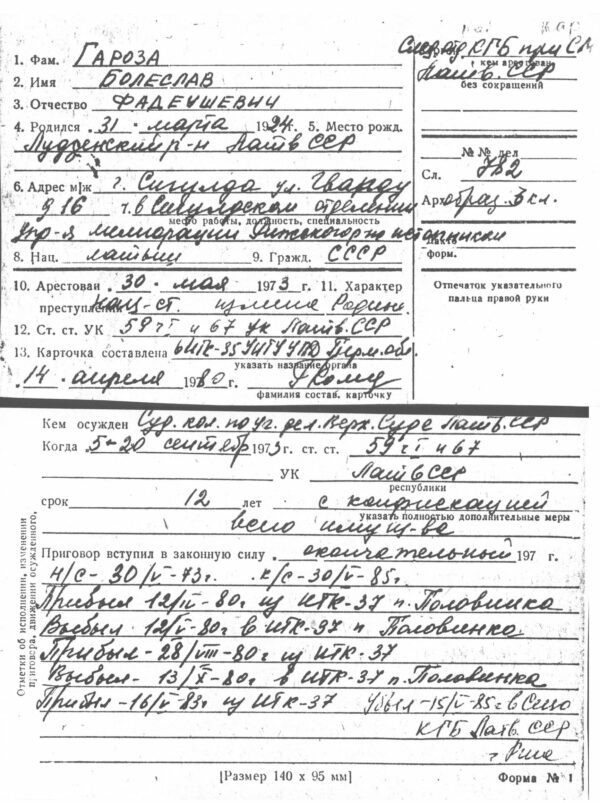 1. Фам. ГАРОЗА
2. Имя БОЛЕСЛАВ
3. Отчество ФАДЕУШЕВИЧ
4. Родился 31 марта 1924 г. 5. Место рожд.
Лудзенский р-н Латв ССР
6. Адрес м/ж г. Сигулда ул. Гванду
д 16 7. в Сигулдском отделении
место работы, должность, специальность
Упр-я мелиорации Рижского р-на источником
8. Нац. латыш 9. Гражд. СССР
10. Арестован 30 мая 1973 г. 11. Характер
преступления нац-ст. измена Родине
12. Ст. ст. УК 59 ч I и 67 УК Латв. ССР
13. Карточка составлена ИТК-35 УИТУ УВД Перм. обл.
указать название органа
14 апреля 1980 г.
фамилия состав. карточку
След. отд КГБ при СМ
кем арестован
Латв. ССР
без сокращений
№ № дел
Сл.
Арх. образ. 3 кл.
форм.
Отпечаток указательного
пальца правой руки
Кем осужден Суд. кол. по уг. дел. Верх. Суда Латв. ССР
Когда 5-20 сентября 1973 г. ст. ст. 59 ч I и 67
УК Латв ССР
республики
срок 12 лет с конфискацией
указать полностью дополнительные меры
всего имущ-ва
Приговор вступил в законную силу окончательный 197 г.
Н/с - 30/V-73 г. к/с - 30/V-85 г.
Прибыл 12/IV-80 г из ИТК-37 п. Половинка
Выбыл 12/V-80 г в ИТК-37 п Половинка
Прибыл - 28/VIII-80 г из ИТК-37
Выбыл - 13/X-80 г. в ИТК-37 п. Половинка
Прибыл - 16/V-83 г из ИТК-37 Убыл - 15/V-85 г в Сизо
КГБ Латв. ССР
г Рига
Отметки об исполнении, изменении
приговора, движении осужденного.
[Размер 140 х 95 мм] Форма № 1